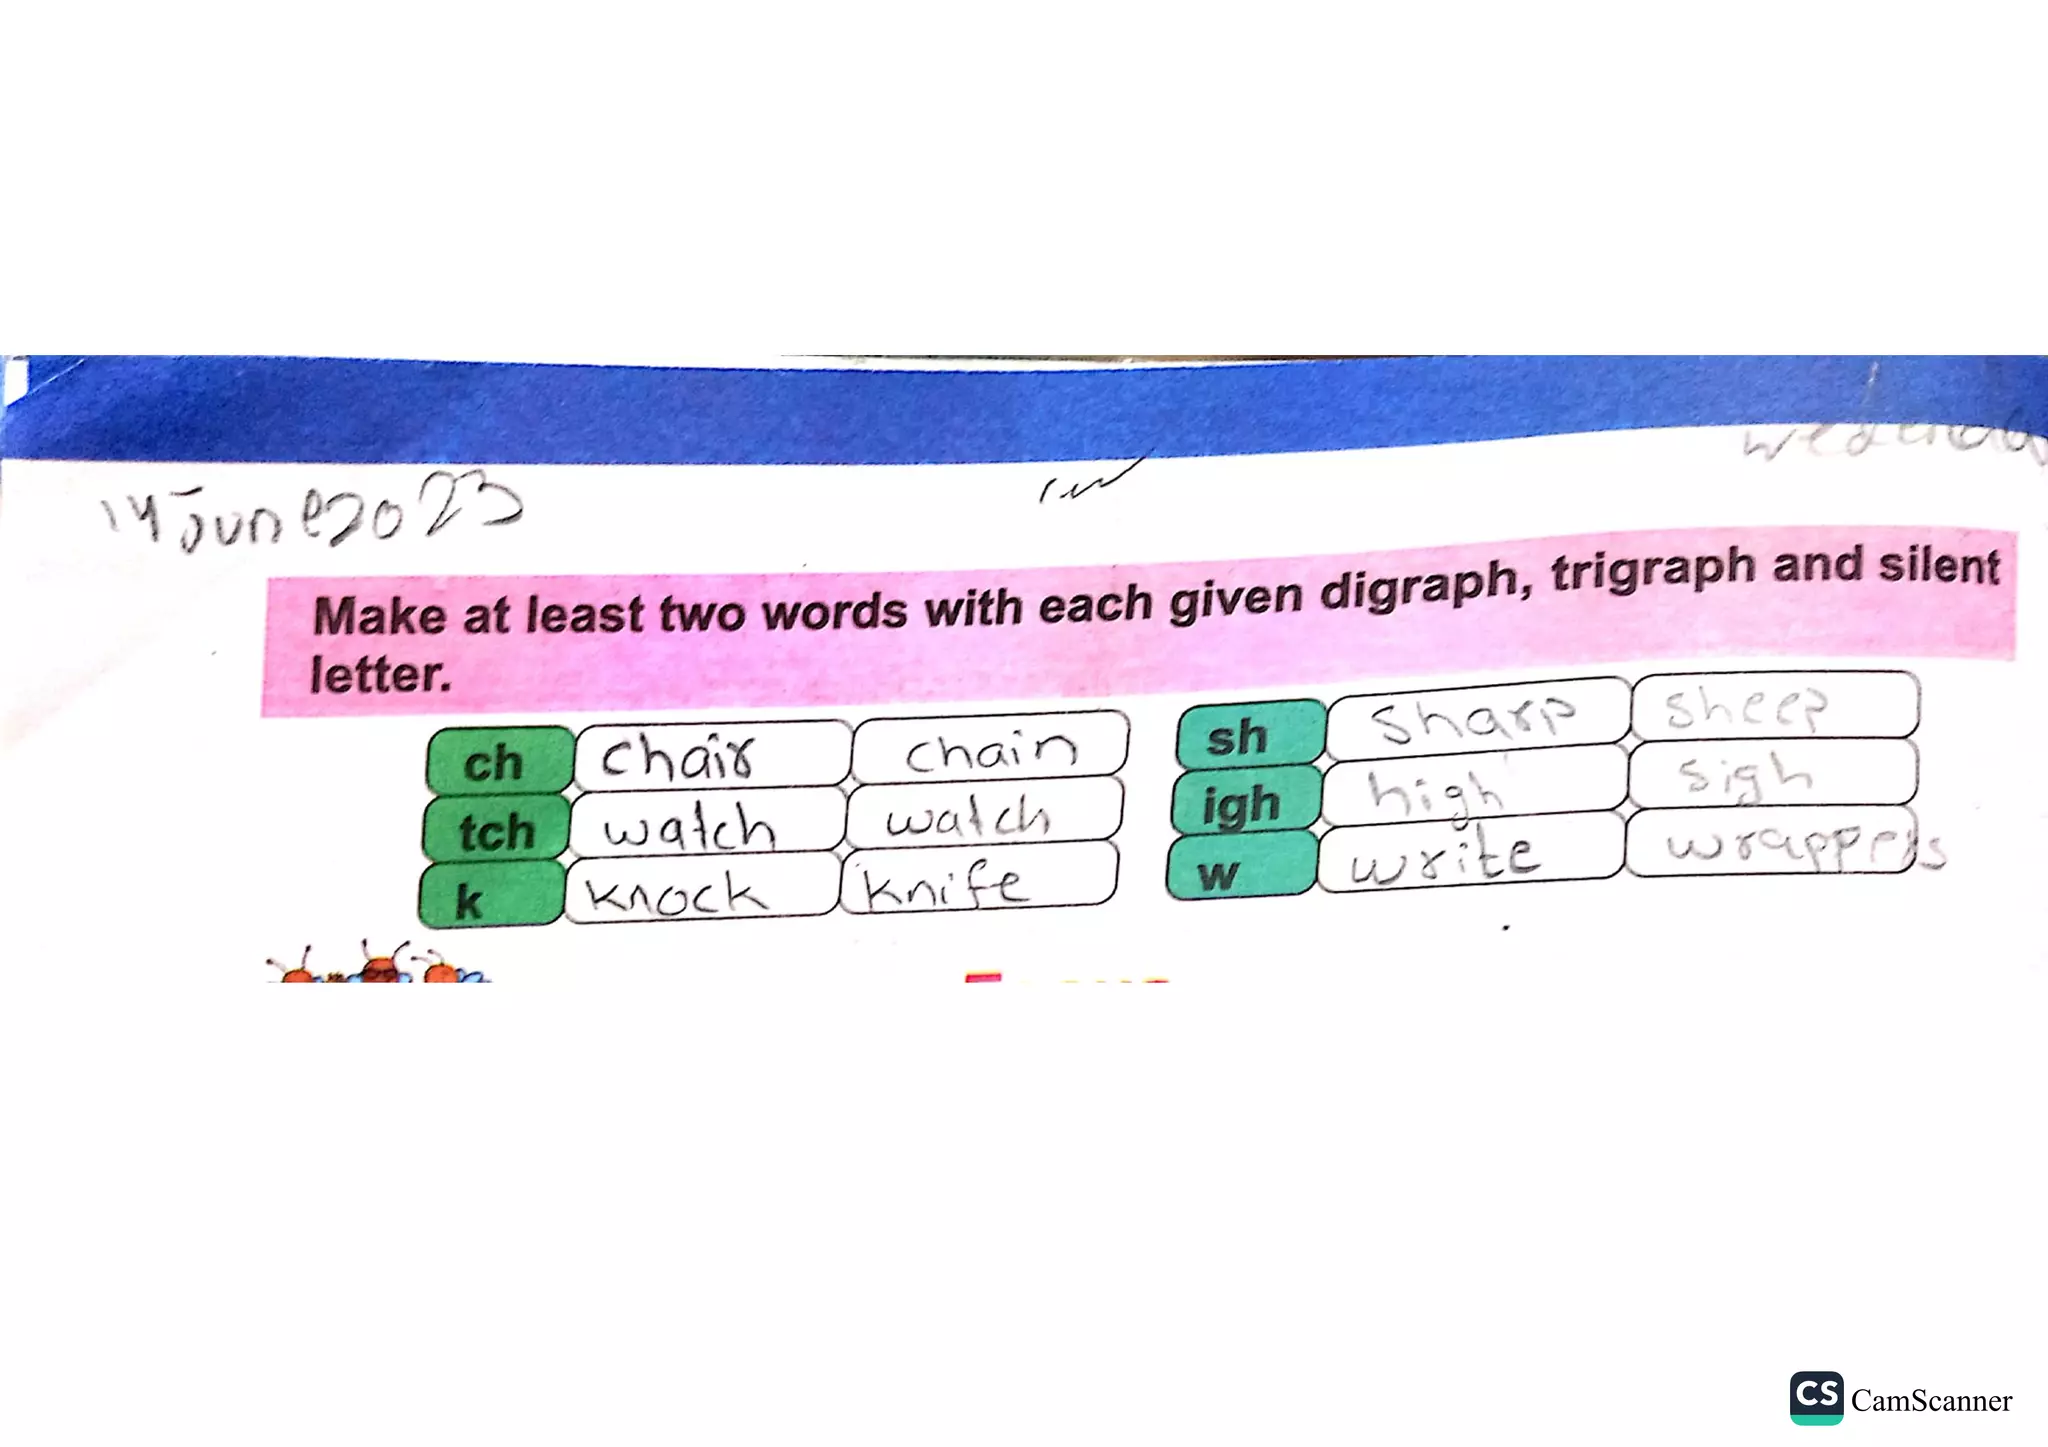 wedenda
14 June 2023
Make at least two words with each given digraph, trigraph and silent
letter.
ch chair chain
tch watch watch
k knock knife
sh sharp sheep
igh high sigh
w write wrappers
CS CamScanner